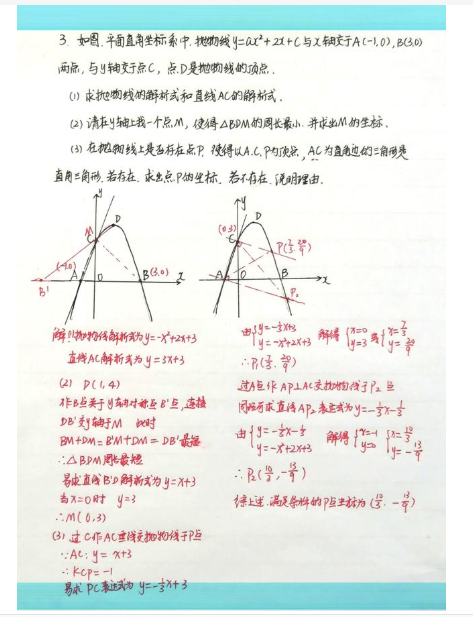 3. 如图,平面直角坐标系中,抛物线y=ax²+2x+C与x轴交于A(-1,0),B(3,0)
两点,与y轴交于点C,点D是抛物线的顶点.
(1) 求抛物线的解析式和直线AC的解析式.
(2) 请在y轴上找一个点M,使得△BDM的周长最小,并求出M的坐标.
(3) 在抛物线上是否存在点P,使得以A.C.P为顶点,AC为直角边的三角形是
直角三角形,若存在,求出点P的坐标,若不存在,说明理由.
y
D
M
C
(-3,0)
A
O
B
(3,0)
x
B'
y
D
(0,3)
C
P(7/3, 20/9)
A
O
B
x
P₂
解:(1)抛物线解析式为y=-x²+2x+3
直线AC解析式为y=3x+3
(2) D(1,4)
作B点关于y轴对称点B'点,连接
DB'交y轴于M 此时
BM+DM=B'M+DM=DB'最短
∴△BDM周长最短
易求直线B'D解析式为y=x+3
当x=0时 y=3
∴M(0,3)
(3) 过C作AC垂线交抛物线于P点
∵AC: y= x+3
∴KCP=-1
易求PC表达式为 y=-1/3x+3
由{y=-1/3x+3 y=-x²+2x+3 解得{x=0 y=3 或{x=7/3 y=20/9
∴P₁(7/3, 20/9)
过A点作AP⊥AC交抛物线于P₂点
同理可求直线AP₂表达式为y=-1/3x-1/3
由{y=-1/3x-1/3 y=-x²+2x+3 解得{x=-1 y=0 {x=10/3 y=-13/9
∴P₂(10/3, -13/9)
综上述,满足条件的P点坐标为(10/3, -13/9)